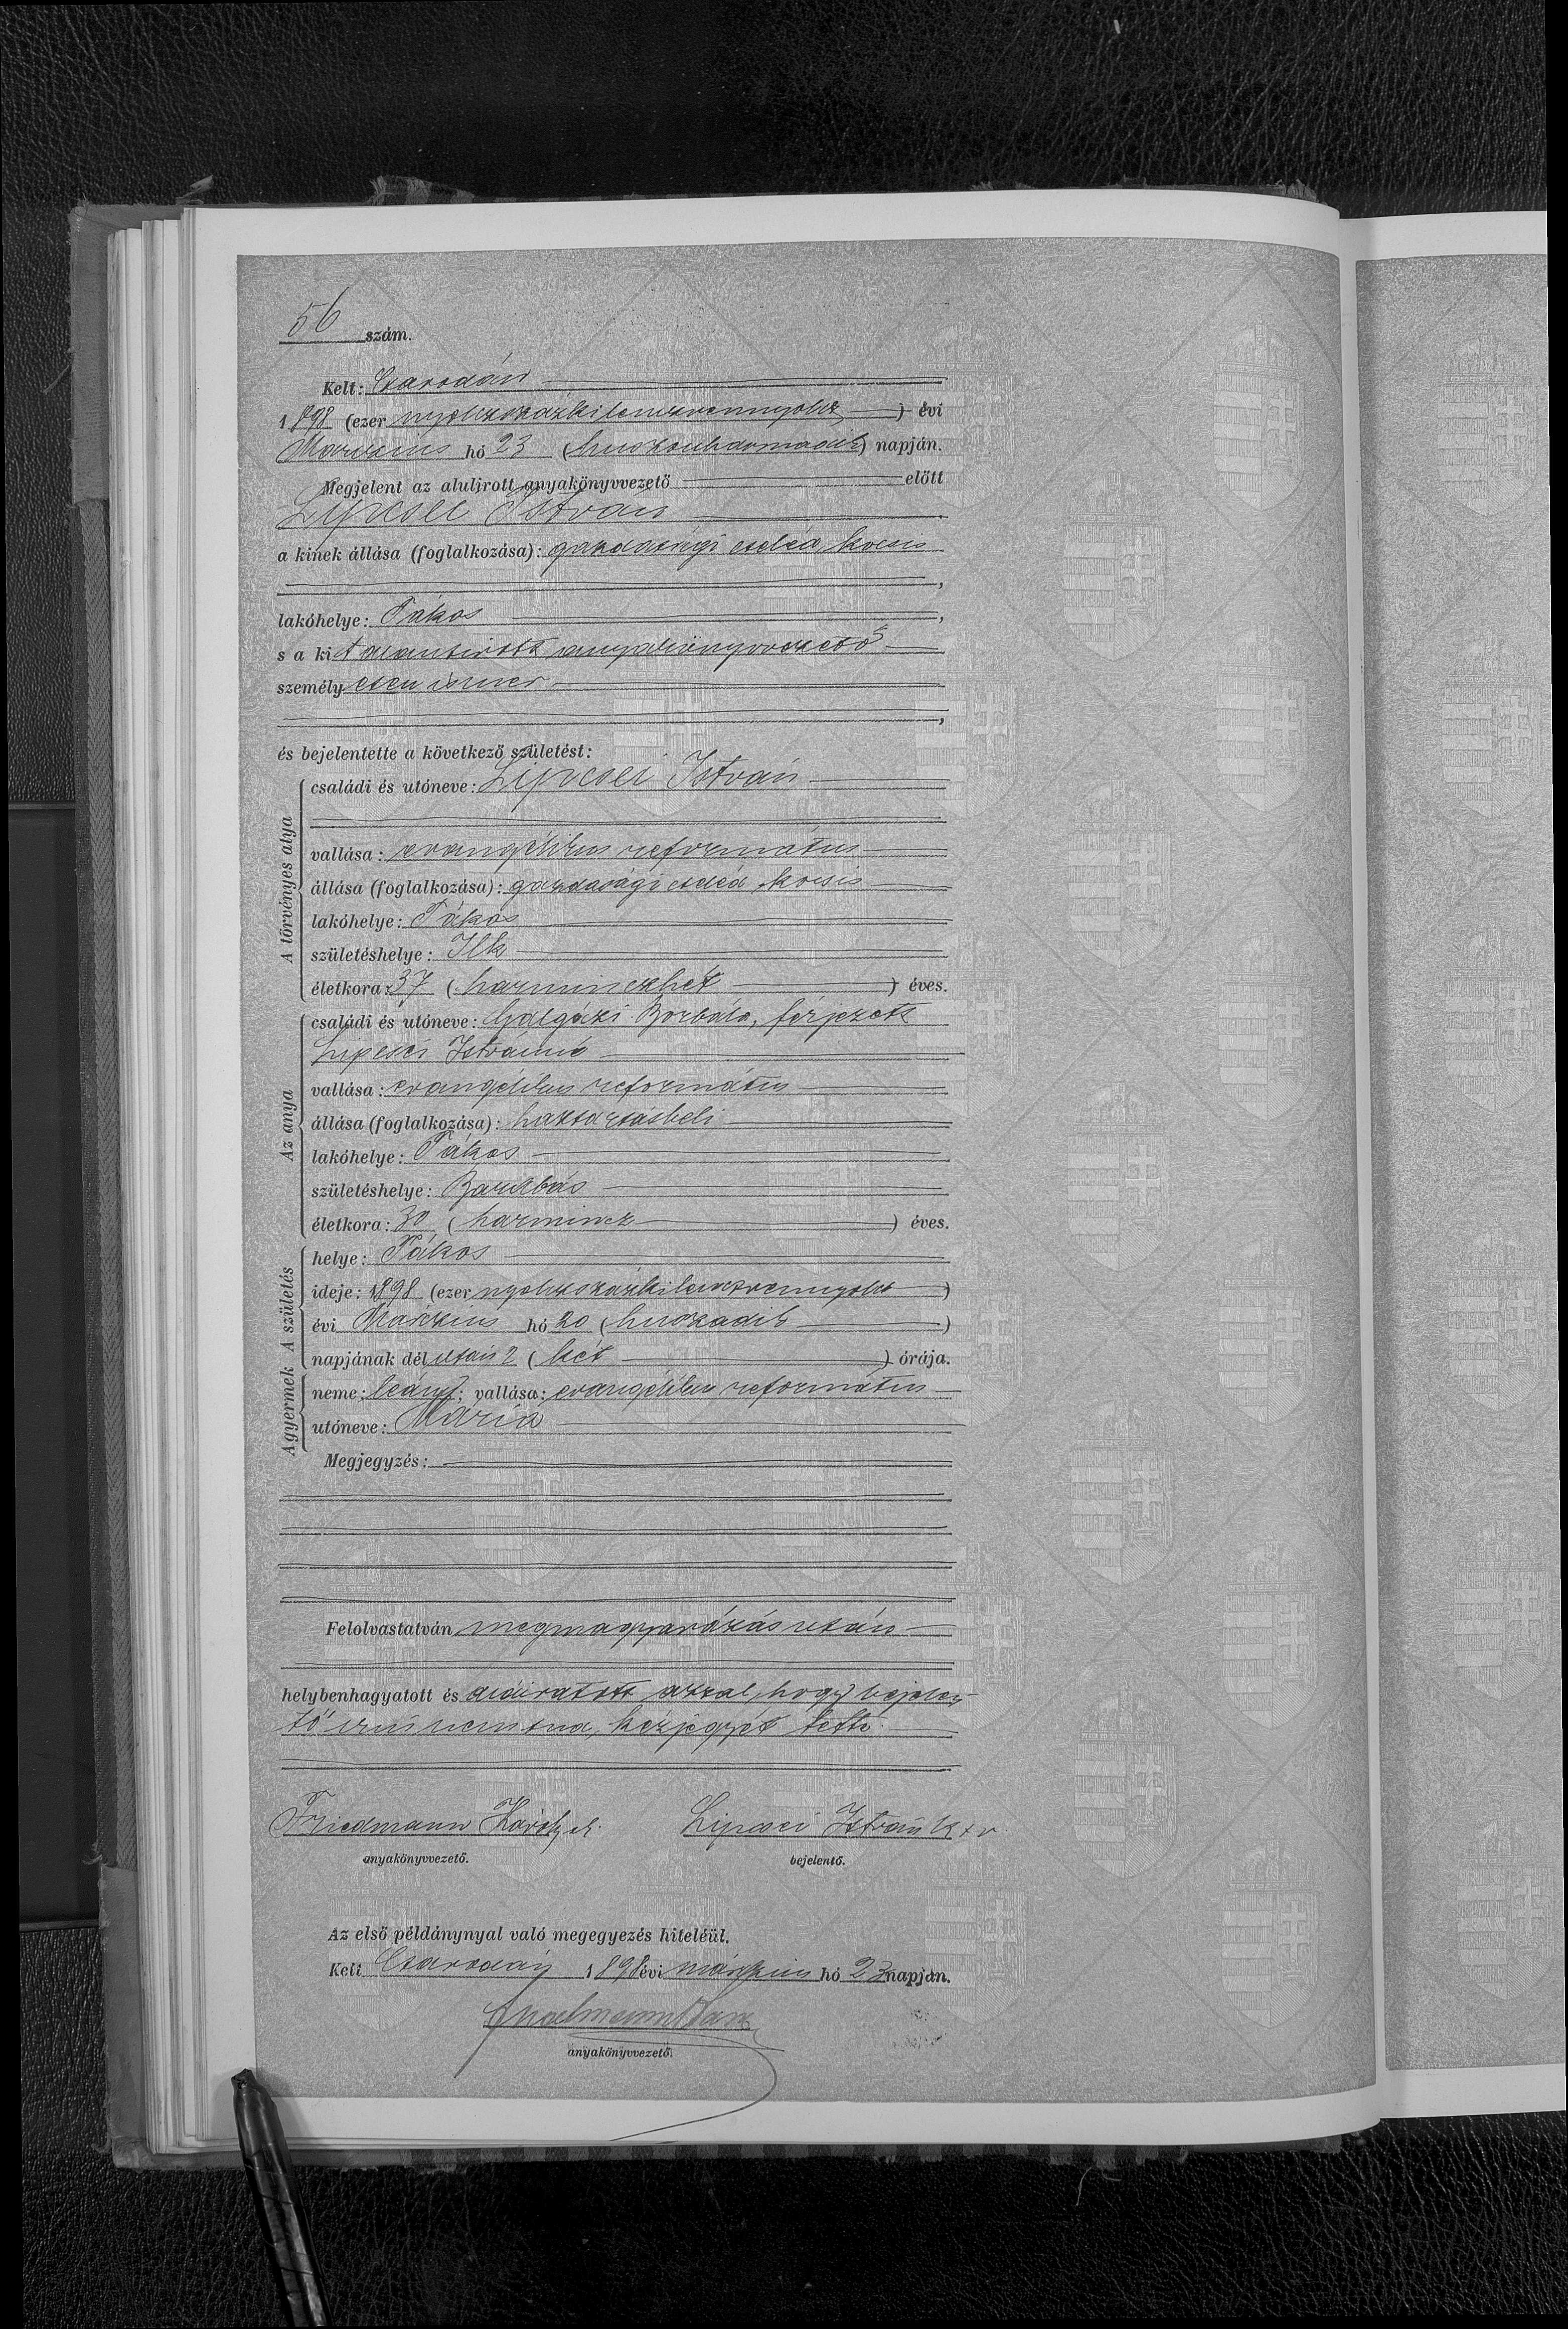 56 szám.
Kelt: Csarodán
1898 (ezer nyolczszázkilenczvennyolcz) évi
Márczius hó 23 (huszonharmadik) napján.
Megjelent az alulírott anyakönyvvezető előtt
Lipcsei István
a kinek állása (foglalkozása): gazdasági cseléd, kocsis
,
lakóhelye: Tákos ,
s a kit alantirott anyakönyvvezető
személyesen ismer
,
és bejelentette a következő születést:
A törvényes atya
családi és utóneve: Lipcsei István
vallása: evangélikus református
állása (foglalkozása): gazdasági cseléd, kocsis
lakóhelye: Tákos
születéshelye: Ilk
életkora: 37 (harminczhét) éves.
Az anya
családi és utóneve: Galgóczi Borbála, férjezett
Lipcsei Istvánné
vallása: evangélikus református
állása (foglalkozása): háztartásbeli
lakóhelye: Tákos
születéshelye: Barabás
életkora: 30 (harmincz) éves.
A születés
helye: Tákos
ideje: 1898 (ezer nyolczszázkilenczvennyolcz)
évi Márczius hó 20 (huszadik)
napjának délután 2 (két) órája.
A gyermek
neme: leány; vallása: evangélikus református
utóneve: Mária
Megjegyzés:
Felolvastatván megmagyarázás után
helybenhagyatott és aláíratott azzal, hogy bejelen-
tő írni nem tud, kézjegyét tette.
Friedmann Károly
anyakönyvvezető.
Lipcsei István k x v
bejelentő.
Az első példánynyal való megegyezés hiteléül.
Kelt Csarodán 1898 évi márczius hó 23 napján.
anyakönyvvezető.